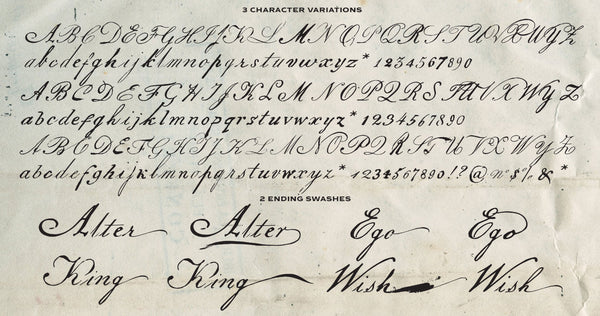 3 CHARACTER VARIATIONS
A B C D E F G H I J K L M N O P Q R S T U V X W Y Z
abcdefghijklmnopqrstuvwxyz* 1234567890
A B C D E F G H I J K L M N O P Q R S T U V X W Y Z
abcdefghijklmnopqrstuvwxyz* 1234567890
A B C D E F G H I J K L M N O P Q R S T U V X W Y Z
abcdefghijklmnopqrstuvwxyz* 1234567890!?@ $% & *
2 ENDING SWASHES
Alter Alter Ego Ego
King King Wish Wish